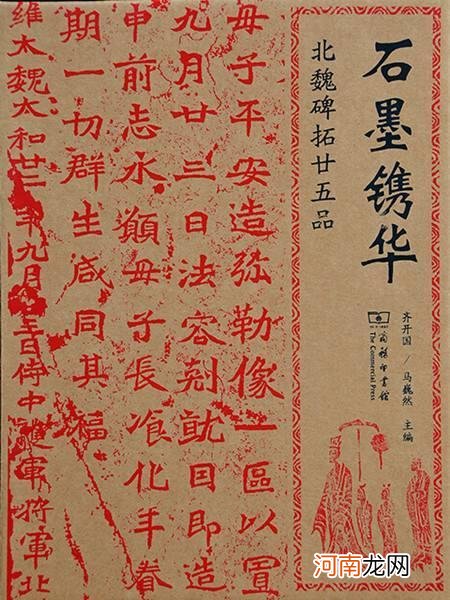 石墨镌华
北魏碑拓廿五品
商務印書館
The Commercial Press
齐开国 / 马巍然 主编
母子平安造弥勒像一區以置
九月廿三日法容剋就因即造
申前志永願母子長飡化年眷
期一切群生咸同其福
維太魏太和廿二年九月廿三日侍中護軍將軍北
河南龙网